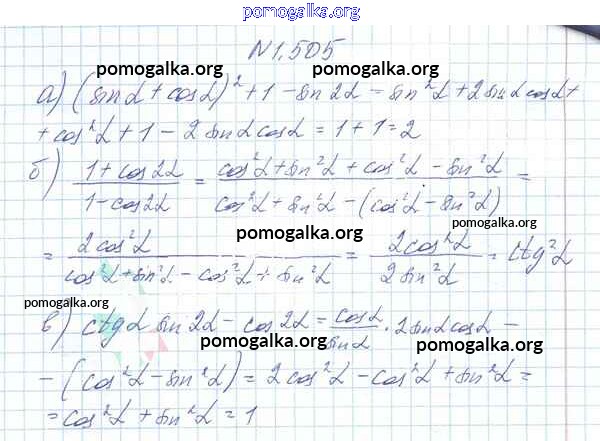 pomogalka.org
N1.505
pomogalka.org pomogalka.org
а) (sinα + cosα)² + 1 - sin2α = sin²α + 2sinαcosα +
+ cos²α + 1 - 2sinαcosα = 1 + 1 = 2
pomogalka.org
б) (1 + cos2α)/(1 - cos2α) = (cos²α + sin²α + cos²α - sin²α)/(cos²α + sin²α - (cos²α - sin²α)) =
pomogalka.org
pomogalka.org
= 2cos²α/(cos²α + sin²α - cos²α + sin²α) = 2cos²α/2sin²α = ctg²α
pomogalka.org
в) ctgα sin2α - cos2α = cosα/sinα · 2sinαcosα -
pomogalka.org pomogalka.org
- (cos²α - sin²α) = 2cos²α - cos²α + sin²α =
= cos²α + sin²α = 1
pomogalka.org